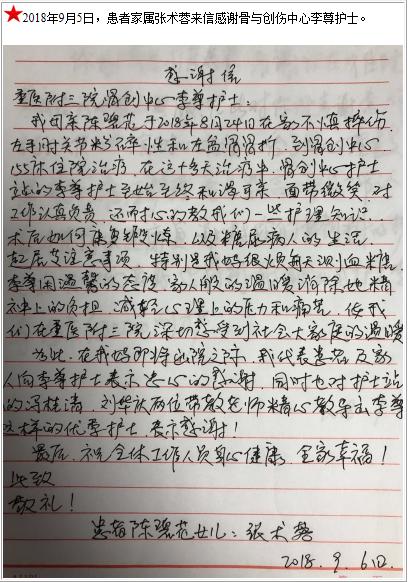 2018年9月5日,患者家属张术蓉来信感谢骨与创伤中心李尊护士。
感谢信
重医附三院骨创中心李尊护士:
我母亲陈碧花于2018年8月24日在家不慎摔伤
左手肘关节粉碎性和左肩骨骨折,到骨创中心
155床住院治疗,在这十多天治疗中,骨创中心护士
站的李尊护士至始至终和谒可亲,面带微笑,对
工作认真负责,还耐心的教我们一些护理知识
术后如何康复锻炼,以及糖尿病人的生活
起居等注意事项,特别是我妈很烦每天测血糖,
李尊用温馨的态度,家人般的温暖消除她精
神上的负担,减轻心理上的压力和痛苦,使我
们在重医附三院深切感受到社会大家庭的温暖
为此,在我妈即将出院之际,我代表患者及家
人向李尊护士表示衷心的感谢,同时也对护士站
的冯桂清,刘华庆两位带教老师精心教导出李尊
这样的优秀护士表示感谢!
最后,祝全体工作人员身心健康,全家幸福!
此致
敬礼!
患者陈碧花女儿:张术蓉
2018.9.6日